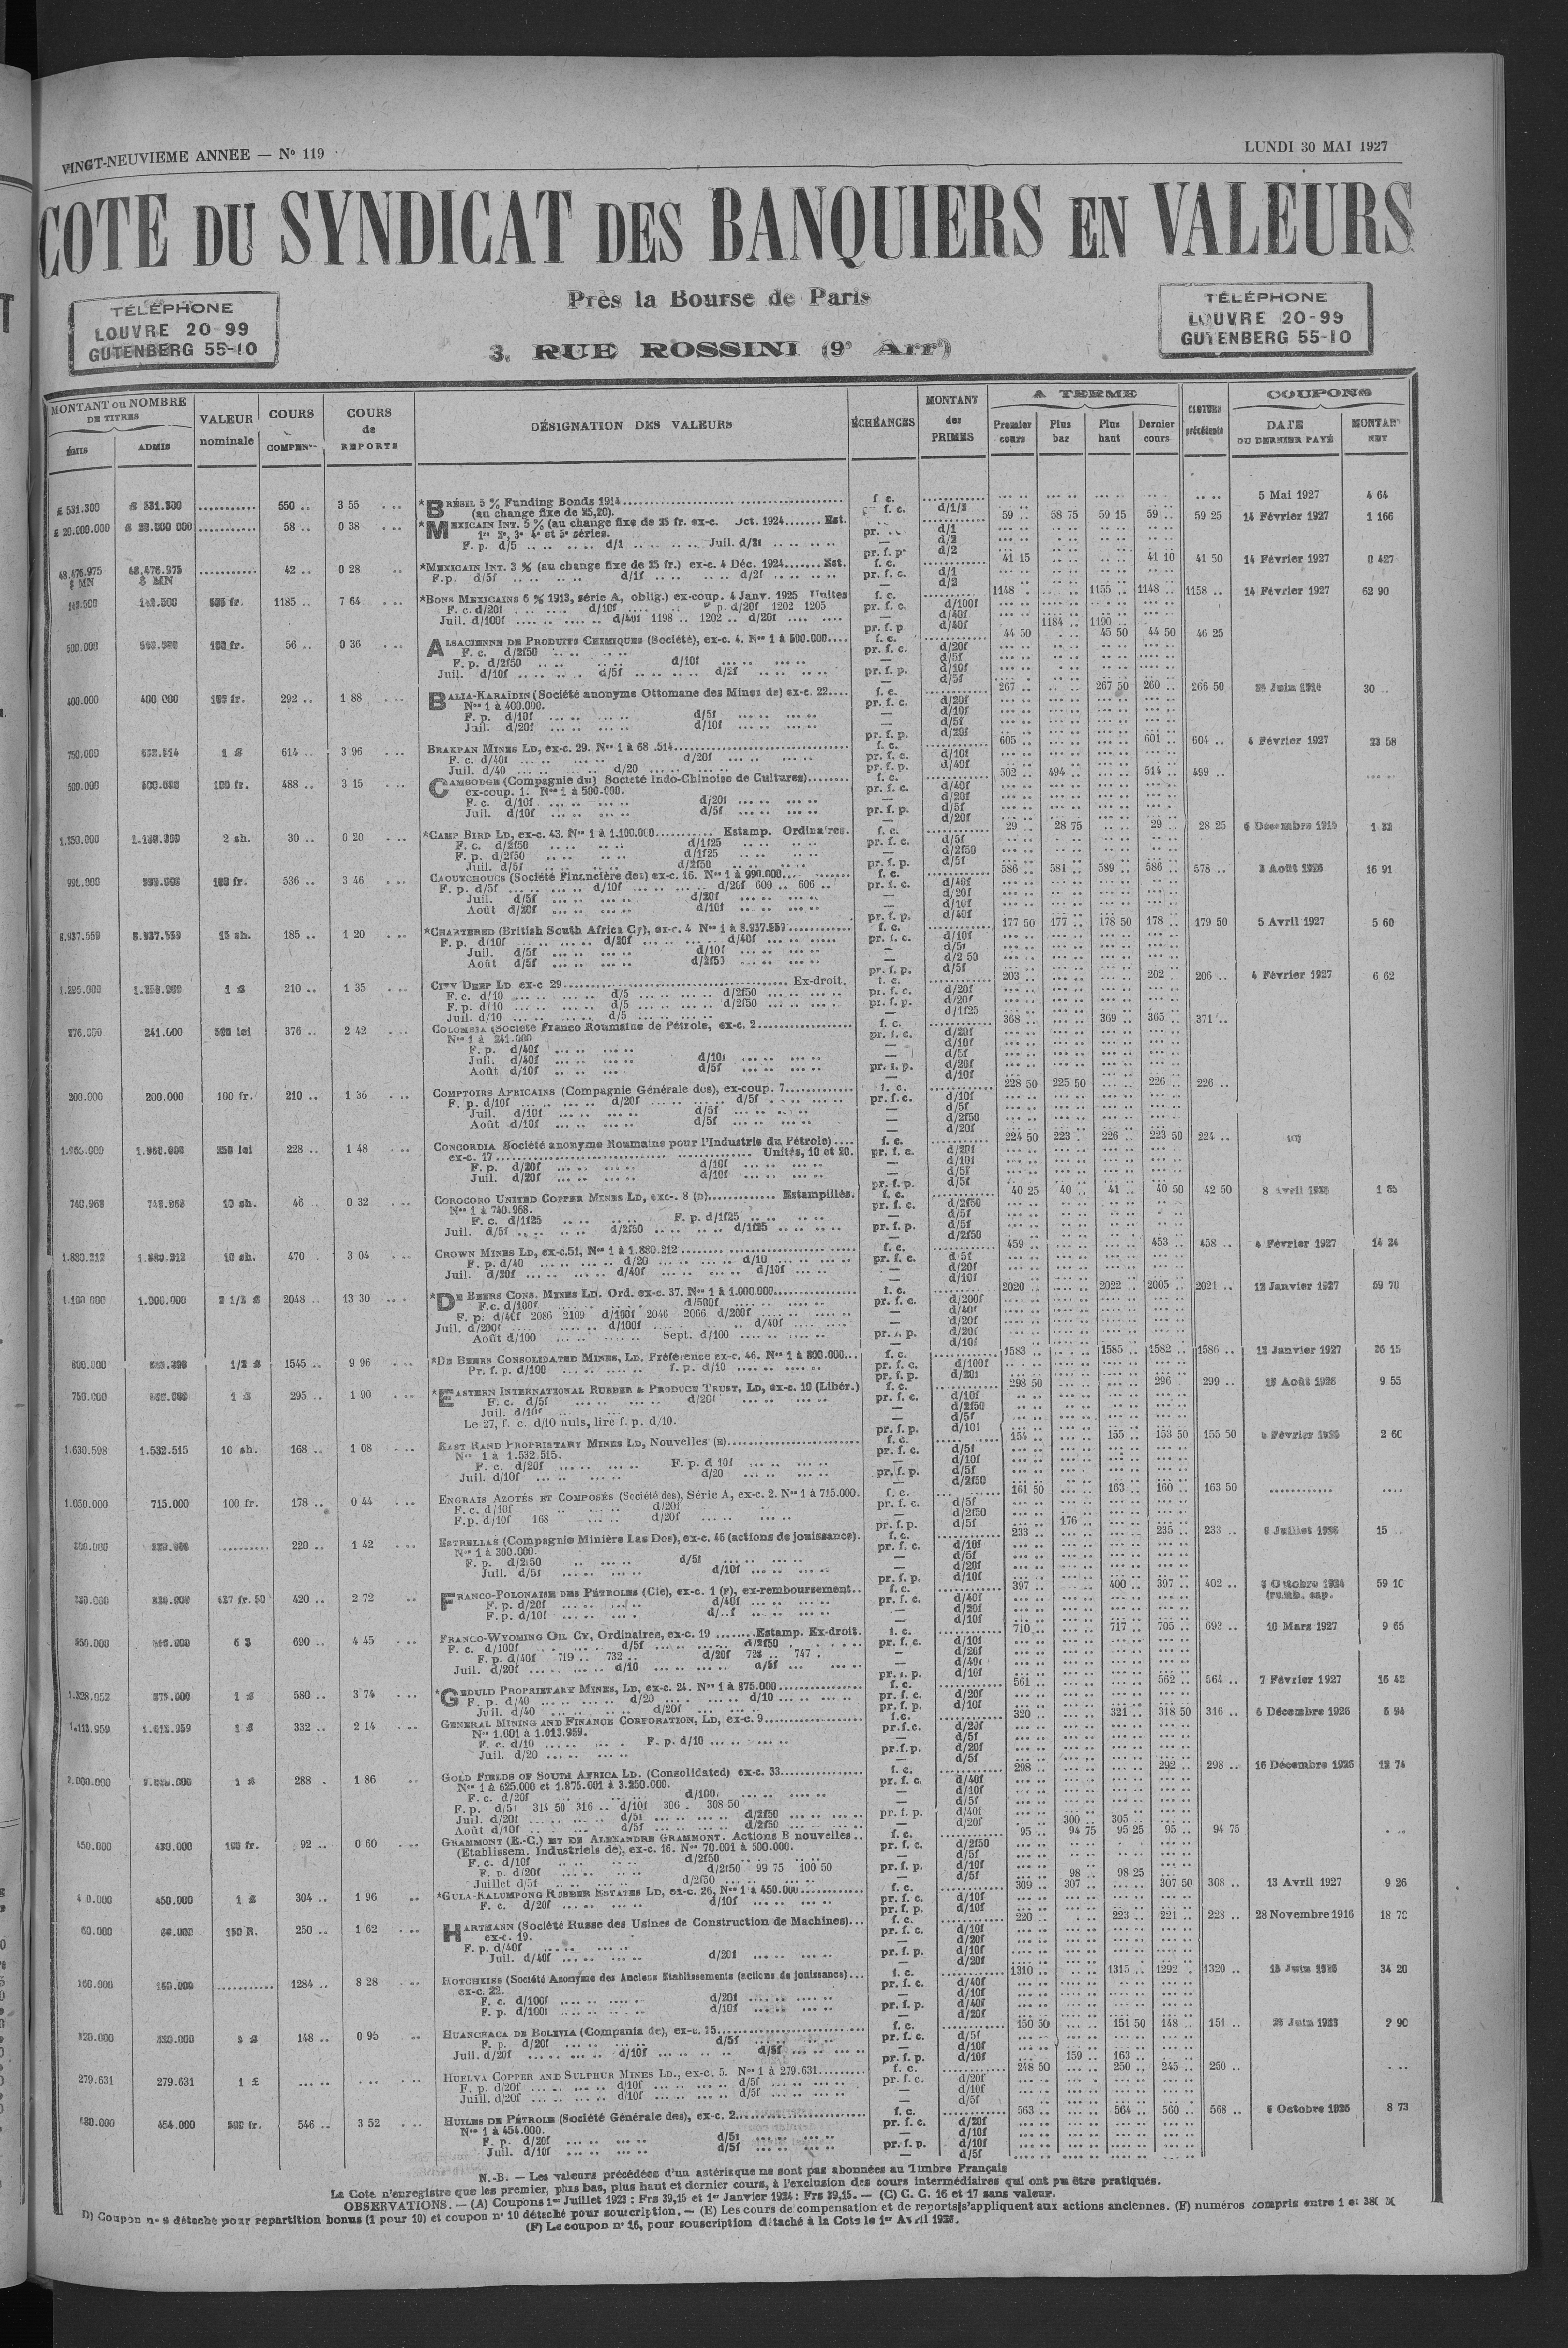 VINGT-NEUVIEME ANNÉE — N° 119
LUNDI 30 MAI 1927
COTE DU SYNDICAT DES BANQUIERS EN VALEURS
Près la Bourse de Paris
3, RUE ROSSINI (9e Arrt)
TÉLÉPHONE
LOUVRE 20-99
GUTENBERG 55-10
TÉLÉPHONE
LOUVRE 20-99
GUTENBERG 55-10
MONTANT ou NOMBRE DE TITRES
ÉMIS ADMIS
VALEUR nominale
COURS COMPEN
COURS de REPORTS
DÉSIGNATION DES VALEURS
ÉCHÉANCES
MONTANT des PRIMES
A TERME
Premier cours Plus bas Plus haut Dernier cours
CLOTURE précédente
COUPONS
DATE DU DERNIER PAYÉ MONTANT NET
£ 531.300 £ 531.300 ........... 550 .. 3 55 *BRÉSIL 5 % Funding Bonds 1914 f. c. 5 Mai 1927 4 64
(au change fixe de 25,20). f. c. d/1/2
£ 20.000.000 58 .. 0 38 *MEXICAIN INT. 5 % (au change fixe de 25 fr. ex-c. Oct. 1924 Est. 59 .. 58 75 59 15 59 .. 59 25 14 Février 1927 1 166
1re 2e, 3e 4e et 5e séries.
F. p. d/5 d/1 Juil. d/2f
48.476.975 $ MN 48.476.975 $ MN 42 .. 0 28 *MEXICAIN INT. 3 % (au change fixe de 25 fr.) ex-c. 4 Déc. 1924 Est. f. c. 41 15 41 10 41 50 14 Février 1927 0 427
F. p. d/5f d/1f d/2f pr. f. c. d/1
142.500 142.500 1185 .. 7 64 *BONS MEXICAINS 6 % 1913, série A, oblig.) ex-coup. 4 Janv. 1925 Unités f. c. 1148 .. 1155 .. 1148 .. 1158 .. 14 Février 1927 62 90
F. c. d/20f d/10f F. p. d/20f 1202 1205 pr. f. c. d/100f
Juil. d/100f d/40f 1198 .. 1202 .. d/20f d/40f
pr. f. p. d/40f 1184 .. 1190 ..
500.000 100 fr. 56 .. 0 36 ALSACIENNE DE PRODUITS CHIMIQUES (Société), ex-c. 4. Nos 1 à 500.000 f. c. 44 50 45 50 44 50 46 25
F. c. d/2f50 pr. f. c. d/20f
F. p. d/2f50 d/10f d/5f
Juil. d/10f d/5f d/2f pr. f. p. d/10f
400.000 400 000 100 fr. 292 .. 1 88 BALIA-KARAÏDIN (Société anonyme Ottomane des Mines de) ex-c. 22 f. c. 267 .. 267 50 260 .. 266 50 30 ..
Nos 1 à 400.000. pr. f. c. d/20f
F. p. d/10f d/5f d/10f
Juil. d/20f d/10f d/5f
pr. f. p. d/20f
750.000 1 £ 614 .. 3 96 BRAKPAN MINES LD, ex-c. 29. f. c. 605 .. 601 .. 604 .. 4 Février 1927 23 58
F. c. d/40f d/20f pr. f. c. d/10f
Juil. d/40 d/20 pr. f. p. d/40f
500.000 100 fr. 488 .. 3 15 CAMBODGE (Compagnie du) Société Indo-Chinoise de Cultures) f. c. 502 .. 494 .. 514 .. 499 ..
ex-coup. 1. Nos 1 à 500.000. pr. f. c. d/40f
F. c. d/10f d/20f d/20f
Juil. d/10f d/5f pr. f. p. d/5f
d/20f
2 sh. 30 .. 0 20 *CAMP BIRD LD, ex-c. 43. Nos 1 à 1.100.000 Estamp. Ordinaires. f. c. 29 .. 28 75 29 .. 28 25 1 32
F. c. d/2f50 d/1f25 pr. f. c. d/5f
F. p. d/2f50 d/1f25 d/2f50
Juil. d/5f d/2f50 pr. f. p. d/5f
100 fr. 536 .. 3 46 CAOUTCHOUCS (Société Financière des) ex-c. 16. Nos 1 à 990.000 f. c. 586 .. 581 .. 589 .. 586 .. 578 .. 3 Août 1926 16 91
F. p. d/5f d/10f d/20f 609 .. 606 .. pr. f. c. d/40f
Juil. d/5f d/20f d/20f
Août d/20f d/10f d/10f
pr. f. p. d/40f
8.937.559 8.937.559 15 sh. 185 .. 1 20 *CHARTERED (British South Africa Cy), ex-c. 4 Nos 1 à 8.937.559 f. c. 177 50 177 .. 178 50 178 .. 179 50 5 Avril 1927 5 60
F. p. d/10f d/20f d/40f pr. f. c. d/10f
Juil. d/5f d/10f d/5f
Août d/5f d/2f50 d/2 50
pr. f. p. d/5f
1.295.000 1 £ 210 .. 1 35 CITY DEEP LD ex-c 29 Ex-droit. f. c. 203 .. 202 .. 206 .. 4 Février 1927 6 62
F. c. d/10 d/5 d/2f50 pr. f. c. d/20f
F. p. d/10 d/5 d/2f50 pr. f. p. d/20f
Juil. d/10 d/5 d/1f25
241.000 500 lei 376 .. 2 42 COLOMBIA (Société Franco Roumaine de Pétrole, ex-c. 2 f. c. 368 .. 369 .. 365 .. 371 ..
Nos 1 à 241.000 pr. f. c. d/20f
F. p. d/40f d/10f
Juil. d/40f d/10f d/5f
Août d/10f d/5f pr. f. p. d/20f
d/10f
200.000 200.000 100 fr. 210 .. 1 36 COMPTOIRS AFRICAINS (Compagnie Générale des), ex-coup. 7 f. c. 228 50 225 50 226 .. 226 ..
F. p. d/10f d/20f d/5f pr. f. c. d/10f
Juil. d/10f d/5f d/5f
Août d/10f d/5f d/2f50
d/20f
250 lei 228 .. 1 48 CONCORDIA Société anonyme Roumaine pour l'Industrie du Pétrole) f. c. 224 50 223 .. 226 .. 223 50 224 ..
ex-c. 17 Unités, 10 et 20. pr. f. c. d/20f
F. p. d/20f d/10f d/10f
Juil. d/20f d/10f d/5f
pr. f. p. d/5f
740.968 10 sh. 46 .. 0 32 COROCORO UNITED COPPER MINES LD, exc-. 8 (D) Estampillés. f. c. 40 25 40 .. 41 .. 40 50 42 50 1 65
Nos 1 à 740.968. pr. f. c. d/2f50
F. c. d/1f25 F. p. d/1f25 d/5f
Juil. d/5f d/2f50 d/1f25 pr. f. p. d/5f
d/2f50
1.880.212 1.880.212 10 sh. 470 .. 3 04 CROWN MINES LD, ex-c.51, Nos 1 à 1.880.212 f. c. 459 .. 453 .. 458 .. 4 Février 1927 14 24
F. p. d/40 d/20 d/10 pr. f. c. d 5f
Juil. d/20f d/40f d/10f d/20f
d/10f
1.100 000 1.000.000 2 1/2 £ 2048 .. 13 30 *DE BEERS CONS. MINES LD. Ord. ex-c. 37. Nos 1 à 1.000.000 f. c. 2020 .. 2022 .. 2005 .. 2021 .. 12 Janvier 1927 59 70
F. c. d/100f d/500f pr. f. c. d/200f
F. p. d/40f 2086 2109 d/100f 2046 2066 d/200f d/40f
Juil. d/200f d/100f d/40f d/20f
Août d/100 Sept. d/100 pr. f. p. d/20f
d/10f
800.000 1/2 £ 1545 .. 9 96 *DE BEERS CONSOLIDATED MINES, LD. Préférence ex-c. 46. Nos 1 à 800.000 f. c. 1583 .. 1585 .. 1582 .. 1586 .. 12 Janvier 1927 26 15
Pr. f. p. d/100 f. p. d/10 pr. f. c. d/100f
pr. f. p. d/20f
750.000 1 £ 295 .. 1 90 *EASTERN INTERNATIONAL RUBBER & PRODUCE TRUST, LD, ex-c. 10 (Libér.) f. c. 298 50 296 .. 299 .. 15 Août 1926 9 55
F. c. d/5f d/20f pr. f. c. d/10f
Juil. d/10f d/2f50
Le 27, f. c. d/10 nuls, lire f. p. d/10. d/5f
pr. f. p. d/10f
1.630.598 1.532.515 10 sh. 168 .. 1 08 EAST RAND PROPRIETARY MINES LD, Nouvelles (E) f. c. 154 .. 155 .. 153 50 155 50 2 60
Nos 1 à 1.532.515. pr. f. c. d/5f
F. c. d/20f F. p. d 10f d/10f
Juil. d/10f d/20 pr. f. p. d/5f
d/2f50
1.050.000 715.000 100 fr. 178 .. 0 44 ENGRAIS AZOTÉS ET COMPOSÉS (Société des), Série A, ex-c. 2. Nos 1 à 715.000. f. c. 161 50 163 .. 160 .. 163 50
F. c. d/10f d/20f pr. f. c. d/5f
F.p. d/10f 168 d/20f d/2f50
pr. f. p. d/5f 176 ..
220 .. 1 42 ESTRELLAS (Compagnie Minière Las Dos), ex-c. 46 (actions de jouissance). f. c. 233 .. 235 .. 233 .. 15 ..
Nos 1 à 300.000. pr. f. c. d/10f
F. p. d/2f50 d/5f d/5f
Juil. d/5f d/10f d/20f
pr. f. p. d/10f
437 fr. 50 420 .. 2 72 FRANCO-POLONAISE DES PÉTROLES (Cie), ex-c. 1 (F), ex-remboursement f. c. 397 .. 400 .. 397 .. 402 .. 3 Octobre 1924 59 10
F. p. d/20f d/40f pr. f. c. d/40f (remb. cap.
F. p. d/10f d/20f
d/10f
690 .. 4 45 FRANCO-WYOMING OIL CY, Ordinaires, ex-c. 19 Estamp. Ex-droit. f. c. 710 .. 717 .. 705 .. 692 .. 10 Mars 1927 9 65
F. c. d/100f d/5f d/2f50 pr. f. c. d/10f
F. p. d/40f 719 .. 732 .. d/20f 728 .. 747 . d/20f
Juil. d/20f d/10 d/5f d/40f
pr. f. p. d/10f
1.328.052 875.000 1 £ 580 .. 3 74 *GEDULD PROPRIETARY MINES, LD, ex-c. 24. Nos 1 à 875.000 f. c. 561 .. 562 .. 564 .. 7 Février 1927 16 42
F. p. d/40 d/20 d/10 pr. f. c. d/20f
Juil. d/40 d/20f pr. f. p. d/10f
1.113.959 1 £ 332 .. 2 14 GENERAL MINING AND FINANCE CORPORATION, LD, ex-c. 9 f. c. 320 .. 321 .. 318 50 316 .. 6 Décembre 1926 5 94
Nos 1.001 à 1.013.959. pr.f.c. d/20f
F. c. d/10 F. p. d/10 d/5f
Juil. d/20 pr.f.p. d/20f
d/5f
1 £ 288 . 1 86 GOLD FIELDS OF SOUTH AFRICA LD. (Consolidated) ex-c. 33 f. c. 298 .. 292 .. 298 .. 16 Décembre 1926 12 74
Nos 1 à 625.000 et 1.875.001 à 3.250.000. pr. f. c. d/40f
F. c. d/20f d/100f d/10f
F. p. d/5f 314 50 316 .. d/10f 306 . 308 50 d/5f
Juil. d/20f d/5f d/2f50 pr. f. p. d/40f
Août d/10f d/5f d/2f50 d/20f 300 .. 305 ..
450.000 100 fr. 92 .. 0 60 GRAMMONT (E.-C.) ET DE ALEXANDRE GRAMMONT. Actions B nouvelles f. c. 95 .. 94 75 95 25 95 .. 94 75
(Etablissem. Industriels de), ex-c. 16. Nos 70.001 à 500.000. pr. f. c. d/2f50
F. c. d/10f d/2f50 d/5f
F. p. d/20f d/2f50 99 75 100 50 pr. f. p. d/10f
Juillet d/5f d/2f50 d/5f 98 .. 98 25
450.000 1 £ 304 .. 1 96 *GULA-KALUMPONG RUBBER ESTATES LD, ex-c. 26, Nos 1 à 450.000 f. c. 309 .. 307 .. 307 50 308 .. 13 Avril 1927 9 26
F. c. d/20f d/10f pr. f. c. d/10f
pr. f. p. d/10f
60.000 60.000 150 R. 250 .. 1 62 HARTMANN (Société Russe des Usines de Construction de Machines) f. c. 220 .. 223 .. 221 .. 228 .. 28 Novembre 1916 18 70
ex-c. 19. pr. f. c. d/10f
F. p. d/40f d/20f
Juil. d/40f d/20f pr. f. p. d/10f
d/20f
160.000 1284 .. 8 28 HOTCHKISS (Société Anonyme des Anciens Etablissements (actions de jouissance) f. c. 1310 .. 1315 .. 1292 .. 1320 .. 34 20
ex-c. 22. pr. f. c. d/40f
F. c. d/100f d/20f d/10f
F. p. d/100f d/10f pr. f. p. d/40f
d/20f
148 .. 0 95 HUANCHACA DE BOLIVIA (Compania de), ex-c. 25 f. c. 150 50 151 50 148 .. 151 .. 2 90
F. p. d/20f d/5f pr. f. c. d/5f
Juil. d/20f d/10f d/5f d/10f
pr. f. p. d/10f 159 .. 163 ..
279.631 279.631 1 £ HUELVA COPPER AND SULPHUR MINES LD., ex-c. 5. Nos 1 à 279.631 f. c. 248 50 250 .. 245 .. 250 ..
F. p. d/20f d/10f d/5f pr. f. c. d/20f
Juill. d/20f d/10f d/5f d/10f
d/5f
454.000 500 fr. 546 .. 3 52 HUILES DE PÉTROLE (Société Générale des), ex-c. 2 f. c. 563 .. 564 .. 560 .. 568 .. 8 73
Nos 1 à 454.000. pr. f. c. d/20f
F. p. d/20f d/5f d/10f
Juil. d/10f d/5f pr. f. p. d/10f
d/5f
N.-B. — Les valeurs précédées d'un astérisque ne sont pas abonnées au Timbre Français
La Cote n'enregistre que les premier, plus bas, plus haut et dernier cours, à l'exclusion des cours intermédiaires qui ont pu être pratiqués.
OBSERVATIONS. — (A) Coupons 1er Juillet 1923 : Frs 39,15 et 1er Janvier 1924 : Frs 39,15. — (C) C. C. 16 et 17 sans valeur.
D) Coupon no 9 détaché pour repartition bonus (1 pour 10) et coupon no 10 détaché pour souscription. — (E) Les cours de compensation et de reports s'appliquent aux actions anciennes. (F) numéros compris entre 1 et
(F) Le coupon no 16, pour souscription détaché à la Cote le 1er Avril